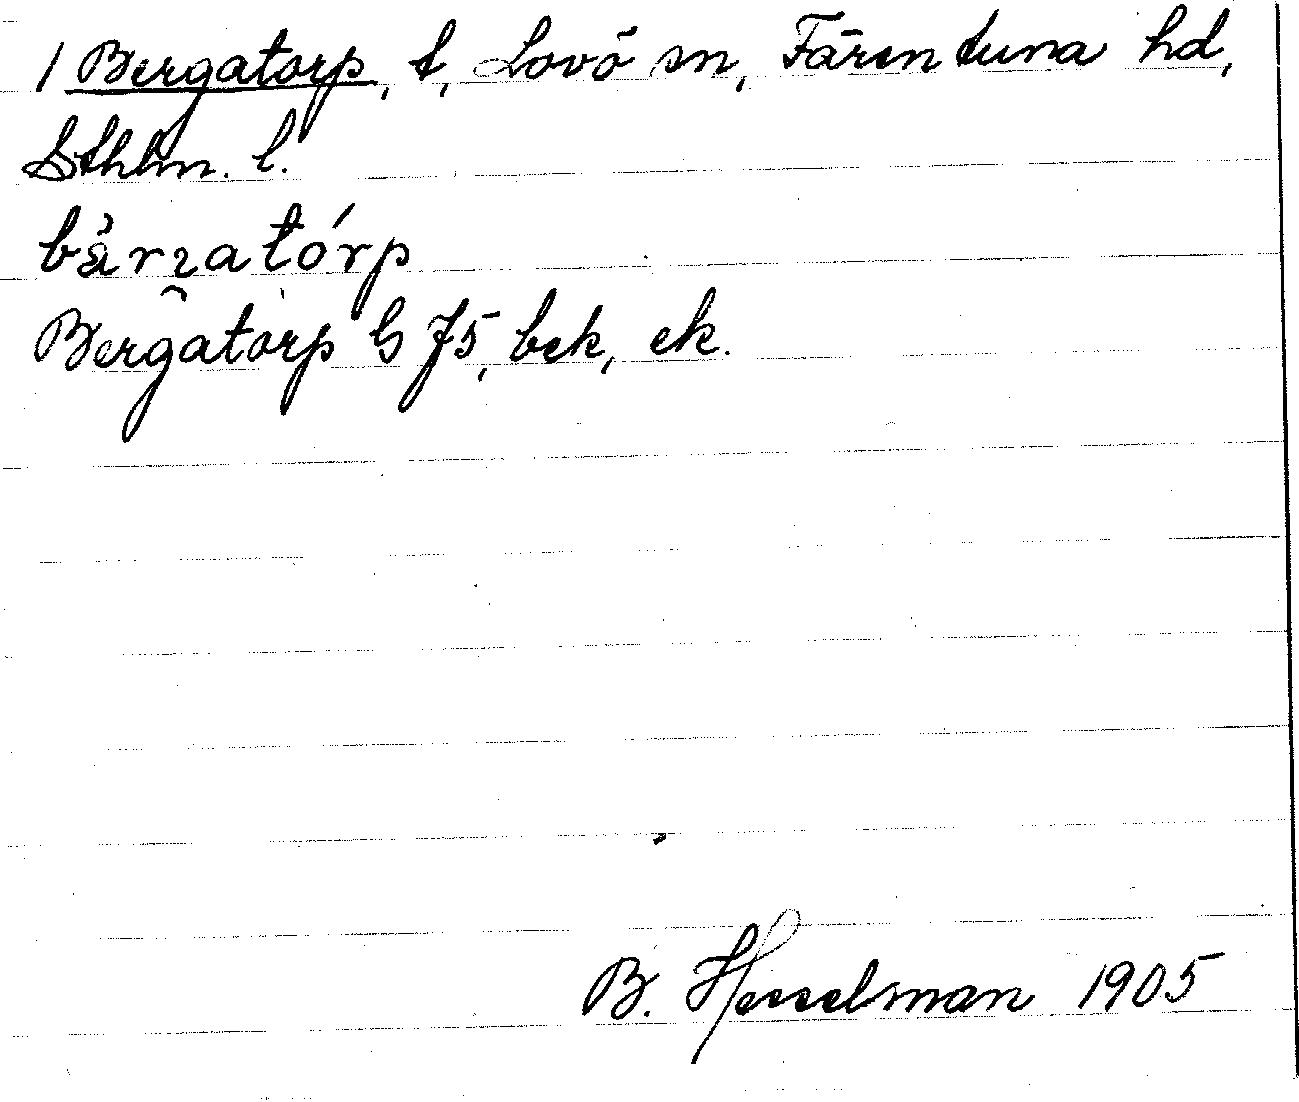 1 Bergatorp, t, Lovö sn, Färentuna hd,
Sthlm. l.
bä̀rɿatórp
Bergatorp G J5, bek, ek.
B. Hesselman 1905